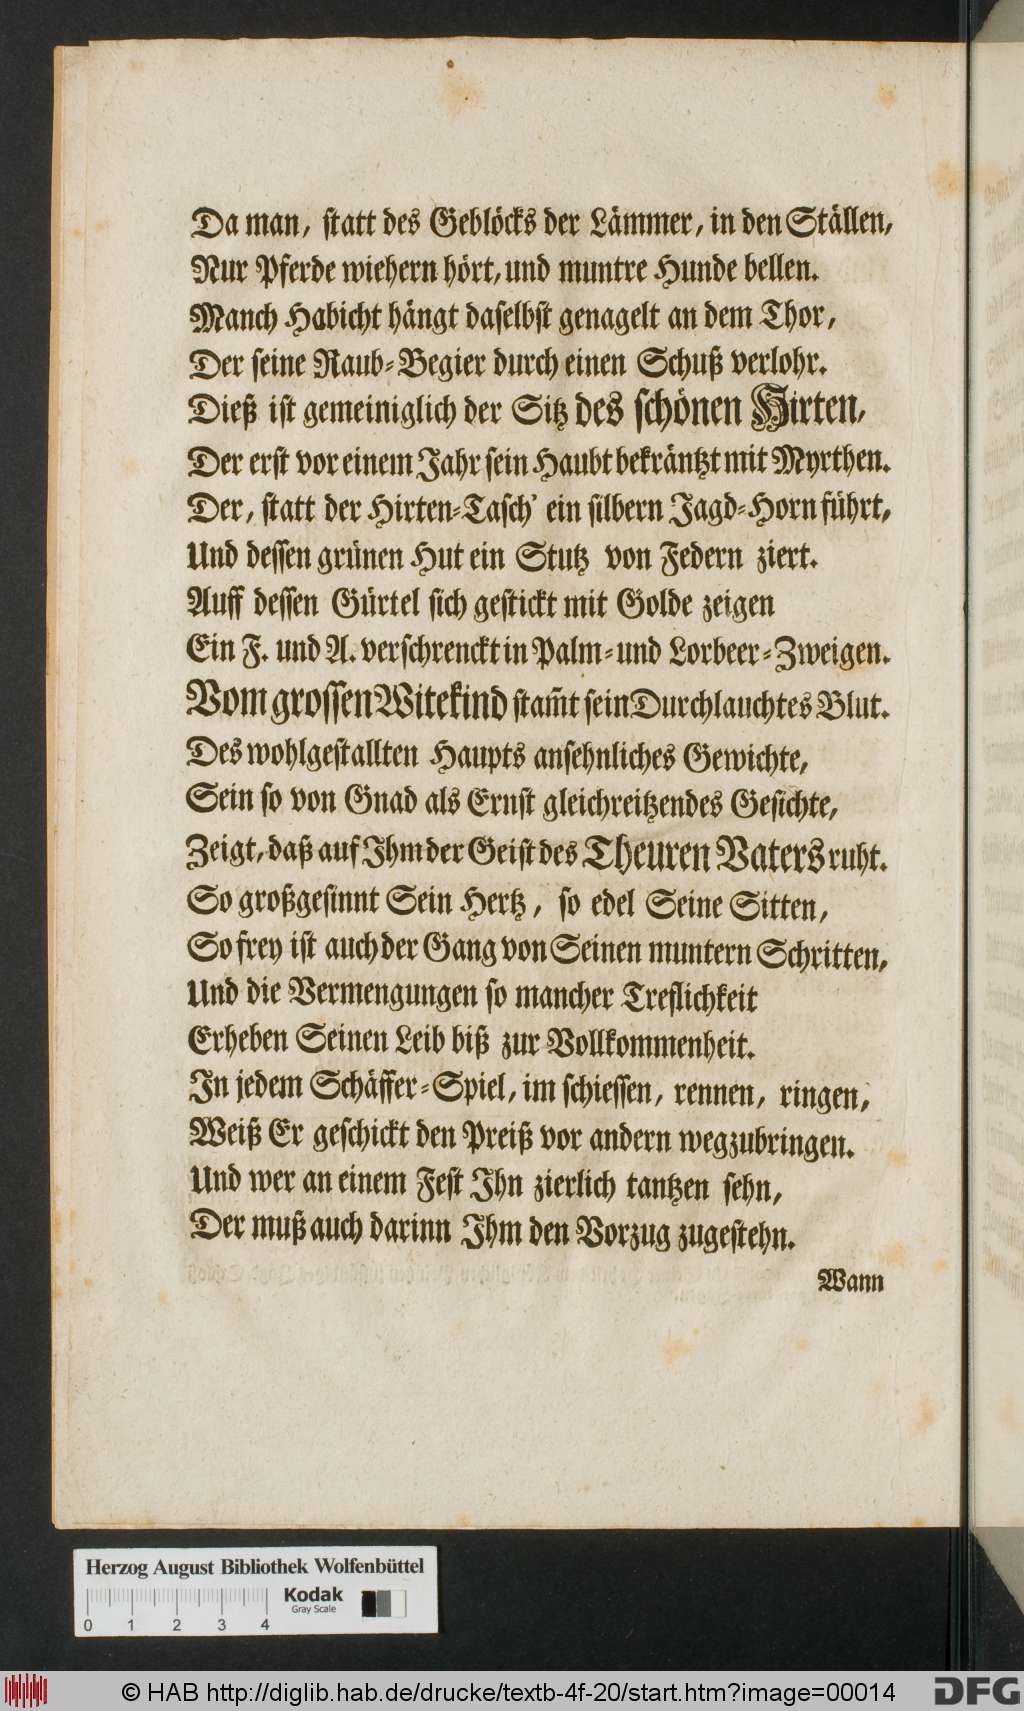 Da man, statt des Geblöcks der Lämmer, in den Ställen,
Nur Pferde wiehern hört, und muntre Hunde bellen.
Manch Habicht hängt daselbst genagelt an dem Thor,
Der seine Raub-Begier durch einen Schuß verlohr.
Dieß ist gemeiniglich der Sitz des schönen Hirten,
Der erst vor einem Jahr sein Haubt bekräntzt mit Myrthen.
Der, statt der Hirten-Tasch' ein silbern Jagd-Horn führt,
Und dessen grünen Hut ein Stutz von Federn ziert.
Auff dessen Gürtel sich gestickt mit Golde zeigen
Ein F. und A. verschrenckt in Palm- und Lorbeer-Zweigen.
Vom grossen Witekind stam̃t sein Durchlauchtes Blut.
Des wohlgestallten Haupts ansehnliches Gewichte,
Sein so von Gnad als Ernst gleichreitzendes Gesichte,
Zeigt, daß auf Ihm der Geist des Theuren Vaters ruht.
So großgesinnt Sein Hertz, so edel Seine Sitten,
So frey ist auch der Gang von Seinen muntern Schritten,
Und die Vermengungen so mancher Treflichkeit
Erheben Seinen Leib biß zur Vollkommenheit.
In jedem Schäffer-Spiel, im schiessen, rennen, ringen,
Weiß Er geschickt den Preiß vor andern wegzubringen.
Und wer an einem Fest Ihn zierlich tantzen sehn,
Der muß auch darinn Ihm den Vorzug zugestehn.
Wann
Herzog August Bibliothek Wolfenbüttel
Kodak
Gray Scale
0 1 2 3 4
© HAB http://diglib.hab.de/drucke/textb-4f-20/start.htm?image=00014
DFG